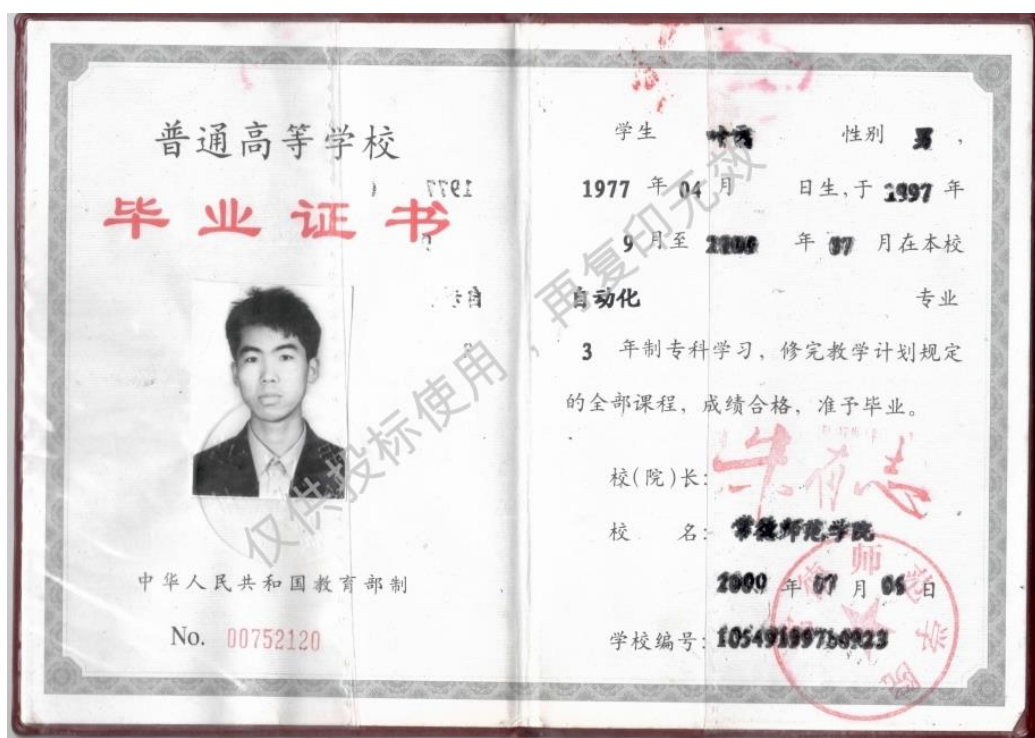 普通高等学校
毕业证书
中华人民共和国教育部制
No. 00752120
学生 性别 男,
1977 年 04 月 日生,于 1997 年
9 月至 2000 年 07 月在本校
自动化 专业
3 年制专科学习,修完教学计划规定
的全部课程,成绩合格,准予毕业。
校(院)长:
校 名: 常德师范学院
2000 年 07 月 06 日
学校编号:
仅供投标使用,再复印无效